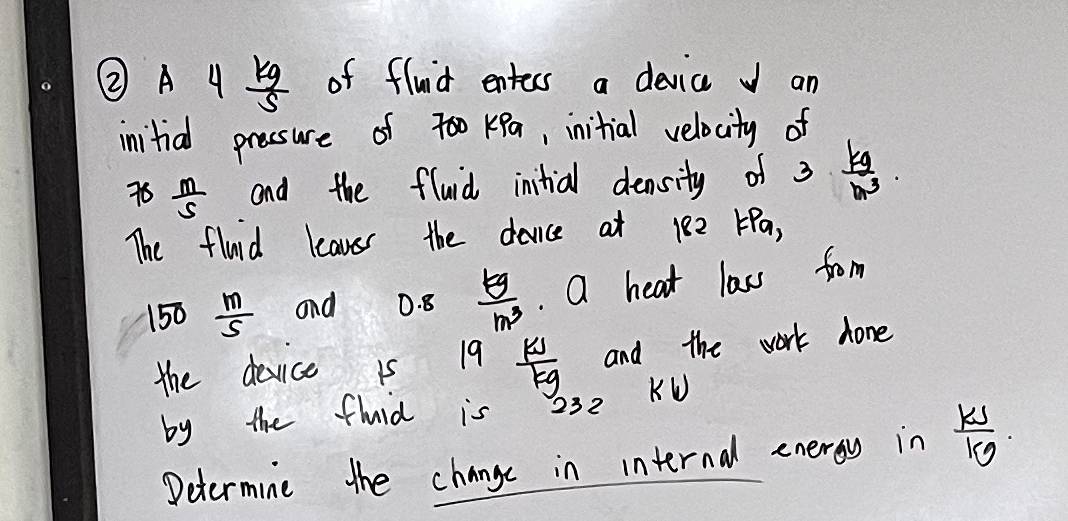 ② A 4 kg/s of fluid enters a device w/ an
initial pressure of 700 KPa, initial velocity of
m/s and the fluid initial density of 3 kg/m³.
The fluid leaves the device at 182 kPa,
150 m/s and 0.8 kg/m³. a heat loss from
the device is 19 KJ/kg and the work done
by the fluid is 232 KW
Determine the change in internal energy in KJ/kg.